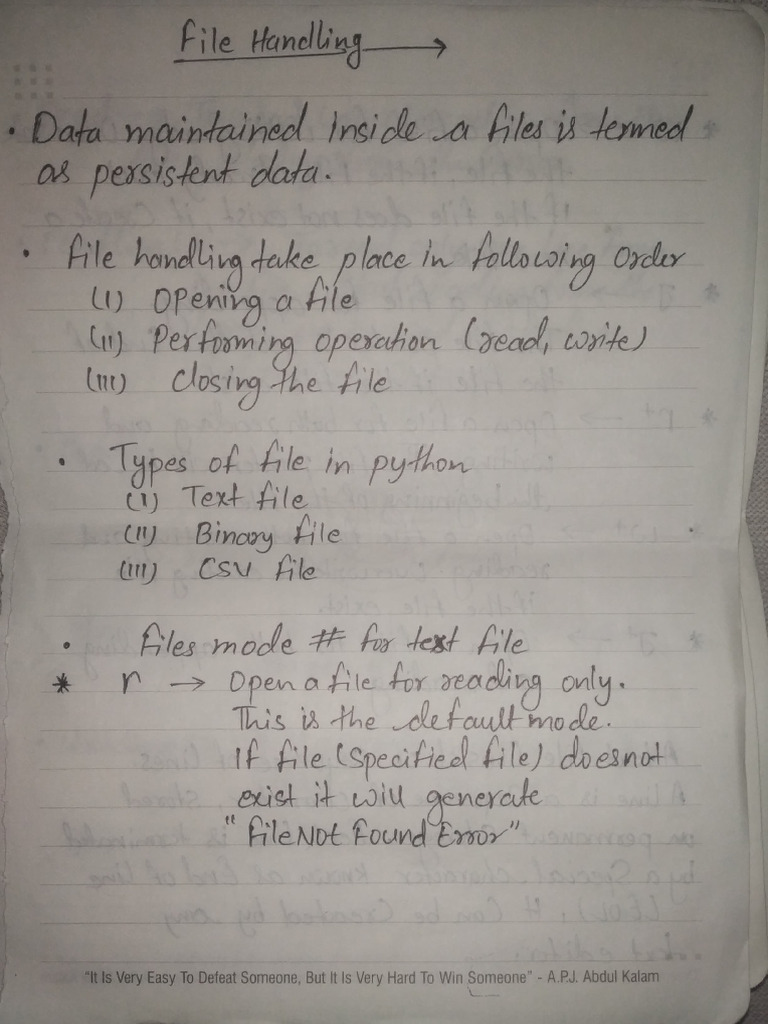 File Handling →
• Data maintained inside a files is termed
as persistent data.
• File handling take place in following order
(I) Opening a file
(II) Performing operation (read, write)
(III) Closing the file
• Types of file in python
(I) Text file
(II) Binary file
(III) CSV file
• Files mode # for text file
* r → Open a file for reading only.
This is the default mode.
If file (specified file) doesnot
exist it will generate
"FileNot Found Error"
"It Is Very Easy To Defeat Someone, But It Is Very Hard To Win Someone" - A.P.J. Abdul Kalam